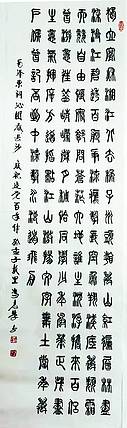 獨立寒秋湘江北去橘子洲頭看萬山紅遍層林盡
染漫江碧透百舸爭流鷹擊長空魚翔淺底萬類霜
天競自由悵寥廓問蒼茫大地誰主沉浮攜來百侶
曾遊憶往昔崢嶸歲月稠恰同學少年風華正茂書
生意氣揮斥方遒指點江山激揚文字糞土當年萬
戶侯曾記否到中流擊水浪遏飛舟
毛澤東詞沁園春長沙